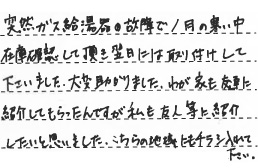 突然ガス給湯器の故障で1月の寒い中
在庫確認して頂き翌日には取り付けして
下さいました。大変助かりました。わが家も友達に
紹介してもらったんですが私も友人等に紹介
したいと思いました。こちらの地域にもチラシ入れて
下さい。